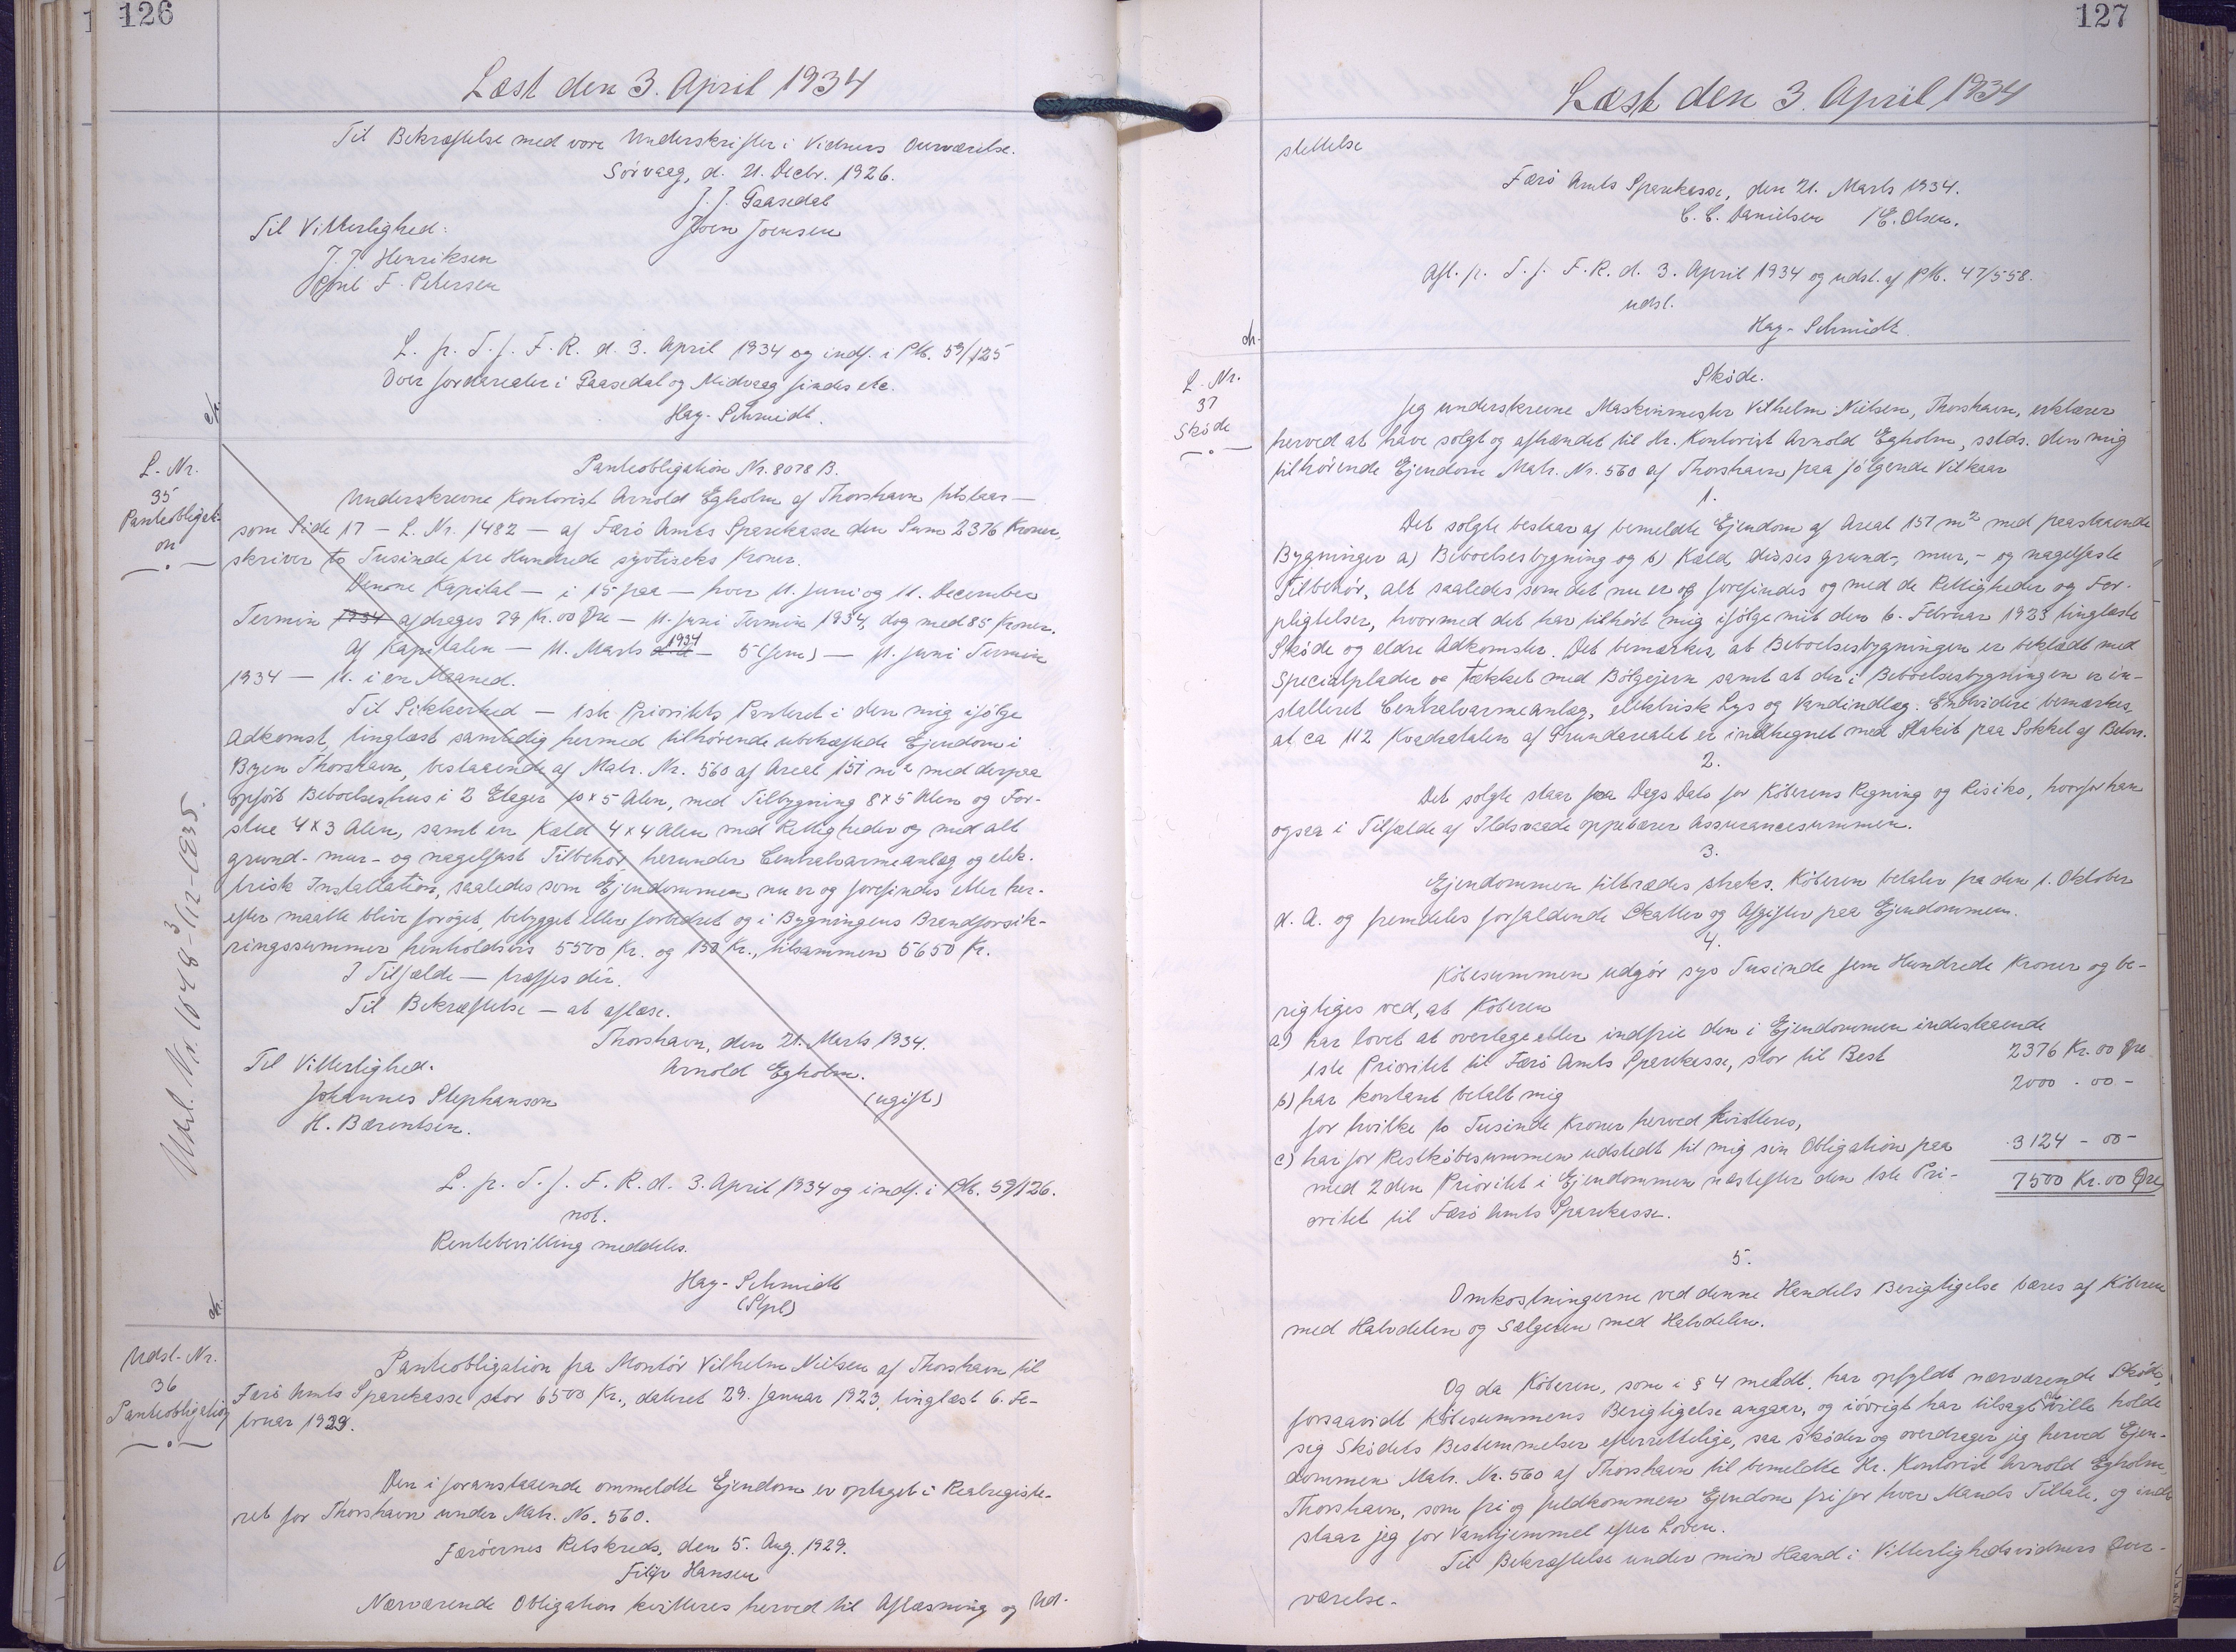 126
Læst den 3. April 1934
Til Bekræftelse med vore Underskrifter i Vidners Overværelse.
Sörvaag, d. 21. Decbr. 1926.
J. J. Gaasedal
Til Vitterlighed:
Joen Joensen
J. J. Henriksen
Emil F. Petersen
L. p. T. f. F. R. d. 3. April 1934 og indf. i Pb. 59/125
Over Jordarealer i Gaasedal og Midvaag findes etc.
Hay-Schmidt.
L. Nr.
35
Panteobligati-
on
Panteobligation Nr. 8078 B.
Underskrevne Kontorist Arnold Egholm af Thorshavn tilstaar —
som Side 17 — L. Nr. 1482 — af Færö Amts Sparekasse den Sum 2376 Kroner,
skriver to Tusinde tre Hundrede syvtiseks Kroner.
Denne Kapital — i 15 paa — hver 11. Juni og 11. December
Termin 1934 afdrages 79 Kr. 00 Øre — 11. Juni Termin 1934, dog med 85 Kroner.
Af Kapitalen — 11. Marts 1934 — 5 (fem) — 11. Juni Termin
1934 — 11. i en Maaned.
Til Sikkerhed — 1ste Prioritets Panteret i den mig ifølge
Adkomst, tinglæst samtidig hermed tilhörende ubehæftede Ejendom i
Byen Thorshavn, bestaaende af Matr. Nr. 560 af Areal 151 m² med derpaa
opført Beboelseshus i 2 Etager 10 x 5 Alen, med Tilbygning 8 x 5 Alen og For-
stue 4 x 3 Alen, samt en Kæld 4 x 4 Alen med Rettigheder og med alt
grund- mur- og nagelfast Tilbehör, herunder Centralvarmeanlæg og elek-
trisk Installation, saaledes som Ejendommen nu er og forefindes eller her-
efter maatte blive foröget, bebygget eller forbedret og i Bygningens Brandforsik-
ringssummer henholdsvis 5500 Kr. og 150 Kr., tilsammen 5650 Kr.
I Tilfælde — træffes dér.
Til Bekræftelse — at aflæse.
Thorshavn, den 21. Marts 1934.
Til Vitterlighed.
Arnold Egholm.
Johannes Stephanson
(ugift)
H. Bærentsen.
L. p. T. f. F. R. d. 3. April 1934 og indf. i Pb. 59/126.
not.
Rentebevilling meddeles.
Hay-Schmidt
(Stpl)
Udsl. Nr. 1648 3/12-1935.
Udsl-Nr.
36
Panteobligation
Panteobligation fra Montör Vilhelm Nielsen af Thorshavn til
Færö Amts Sparekasse stor 6500 Kr., dateret 29. Januar 1923, tinglæst 6. Fe-
bruar 1923.
Den i foranstaaende ommeldte Ejendom er optaget i Realregiste-
ret for Thorshavn under Matr. No. 560.
Færöernes Retskreds, den 5. Aug. 1929.
Filip Hansen
Nærværende Obligation kvitteres herved til Aflæsning og Ud-
127
Læst den 3. April 1934
slettelse
Færö Amts Sparekasse, den 21. Marts 1934.
C. C. Danielsen / E. Olsen.
Afl. p. T. f. F. R. d. 3. April 1934 og udsl. af Pb. 47/558.
udsl.
Hay-Schmidt.
L. Nr.
37
Sköde
Sköde.
Jeg underskrevne Maskinmester Vilhelm Nielsen, Thorshavn, erklærer
herved at have solgt og afhændet til Hr. Kontorist Arnold Egholm, sstds. den mig
tilhörende Ejendom Matr. Nr. 560 af Thorshavn paa fölgende Vilkaar
1.
Det solgte bestaar af bemeldte Ejendom af Areal 151 m² med paastaaende
Bygninger a) Beboelsesbygning og b) Kæld, disses grund-, mur,- og nagelfaste
Tilbehör, alt saaledes som det nu er og forefindes og med de Rettigheder og For-
pligtelser, hvormed det har tilhört mig ifölge mit den 6. Februar 1923 tinglæste
Sköde og ældre Adkomster. Det bemærkes, at Beboelsesbygningen er beklædt med
Specialplader og tækket med Bölgejern samt at der i Beboelsesbygningen er in-
stalleret Centralvarmeanlæg, elektrisk Lys og Vandindlæg. Endvidere bemærkes,
at ca 112 Kvadratalen af Grundarealet er indhegnet med Stakit paa Sokkel af Beton.
2.
Det solgte staar fra Dags Dato for Köberens Regning og Risiko, hvorfor han
ogsaa i Tilfælde af Ildsvaade oppebærer Assurancesummen.
3.
Ejendommen tiltrædes straks. Köberen betaler fra den 1. Oktober
d. A. og fremdeles forfaldende Skatter og Afgifter paa Ejendommen.
4.
Köbesummen udgör syv Tusinde fem Hundrede Kroner og be-
rigtiges ved, at Köberen
a) har lovet at overtage eller indfrie den i Ejendommen indestaaende
1ste Prioritet til Færö Amts Sparekasse, stor til Rest 2376 Kr. 00 Øre
b) har kontant betalt mig 2000 - 00 -
for hvilke to Tusinde Kroner herved kvitteres,
c) har for Restköbesummen udstedt til mig sin Obligation paa 3124 - 00 -
med 2den Prioritet i Ejendommen næstefter den 1ste Pri- 7500 Kr. 00 Øre
oritet til Færö Amts Sparekasse.
5.
Omkostningerne ved denne Handels Berigtigelse bæres af Köberen
med Halvdelen og Sælgeren med Halvdelen.
Og da Köberen, som i § 4 meldt, har opfyldt nærværende Sköde,
forsaavidt Köbesummens Berigtigelse angaar, og iövrigt har tilsagt at ville holde
sig Sködets Bestemmelser efterrettelige, saa sköder og overdrager jeg herved Ejen-
dommen Matr. Nr. 560 af Thorshavn til bemeldte Hr. Kontorist Arnold Egholm,
Thorshavn, som fri og fuldkommen Ejendom fri for hver Mands Tiltale, og inde-
staar jeg for Vanhjemmel efter Loven.
Til Bekræftelse under min Haand i Vitterlighedsvidners Over-
værelse.